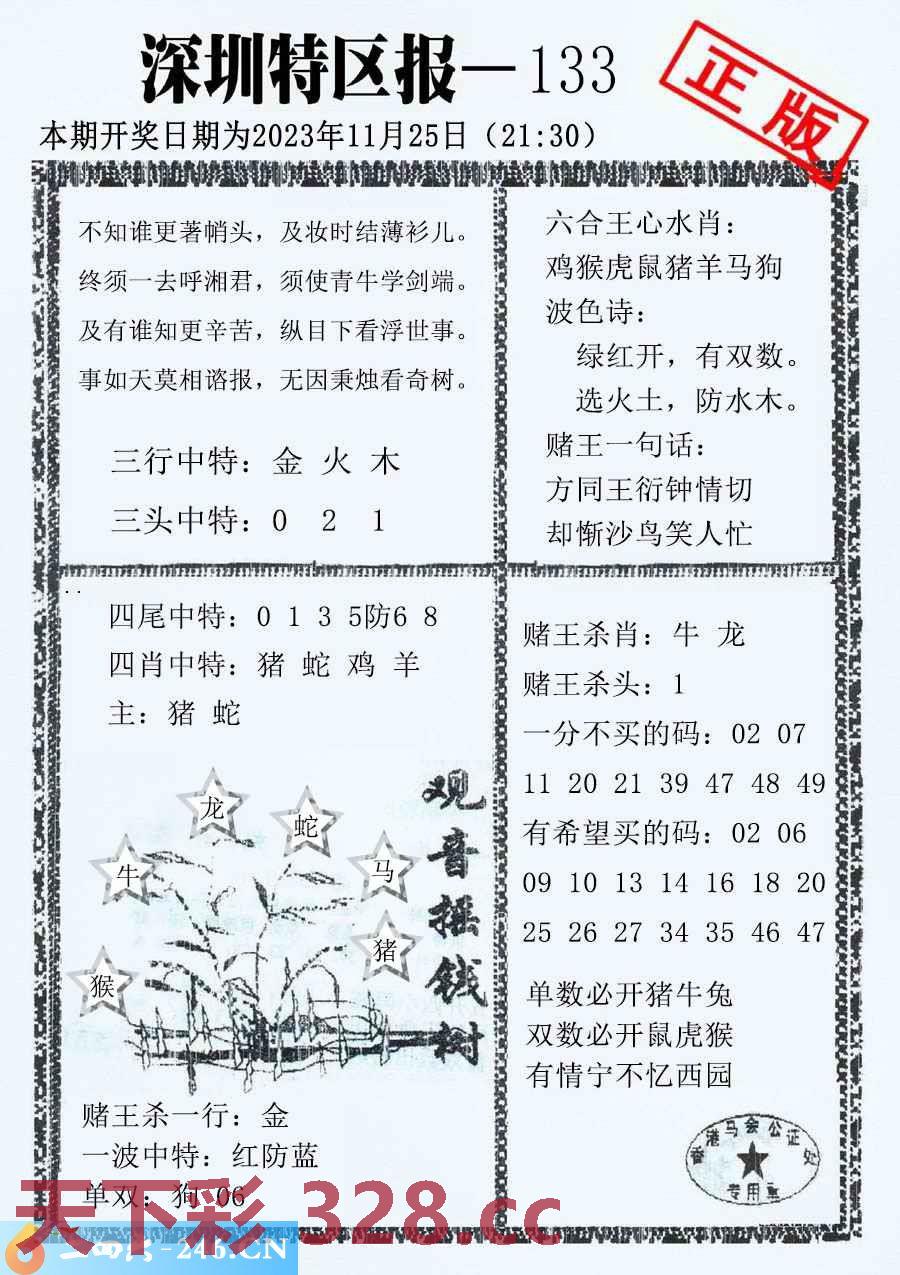 深圳特区报—133
正版
本期开奖日期为2023年11月25日（21:30）
不知谁更著帩头，及妆时结薄衫儿。
终须一去呼湘君，须使青牛学剑端。
及有谁知更辛苦，纵目下看浮世事。
事如天莫相谘报，无因秉烛看奇树。
三行中特：金 火 木
三头中特：0 2 1
六合王心水肖：
鸡猴虎鼠猪羊马狗
波色诗：
绿红开，有双数。
选火土，防水木。
赌王一句话：
方同王衍钟情切
却惭沙鸟笑人忙
四尾中特：0 1 3 5防6 8
四肖中特：猪 蛇 鸡 羊
主：猪 蛇
龙
蛇
牛
马
猪
猴
观音摇钱树
赌王杀一行：金
一波中特：红防蓝
单双：狗 06
赌王杀肖：牛 龙
赌王杀头：1
一分不买的码：02 07
11 20 21 39 47 48 49
有希望买的码：02 06
09 10 13 14 16 18 20
25 26 27 34 35 46 47
单数必开猪牛兔
双数必开鼠虎猴
有情宁不忆西园
香港马会公证处
专用章
天下彩 328.cc
-246.CN